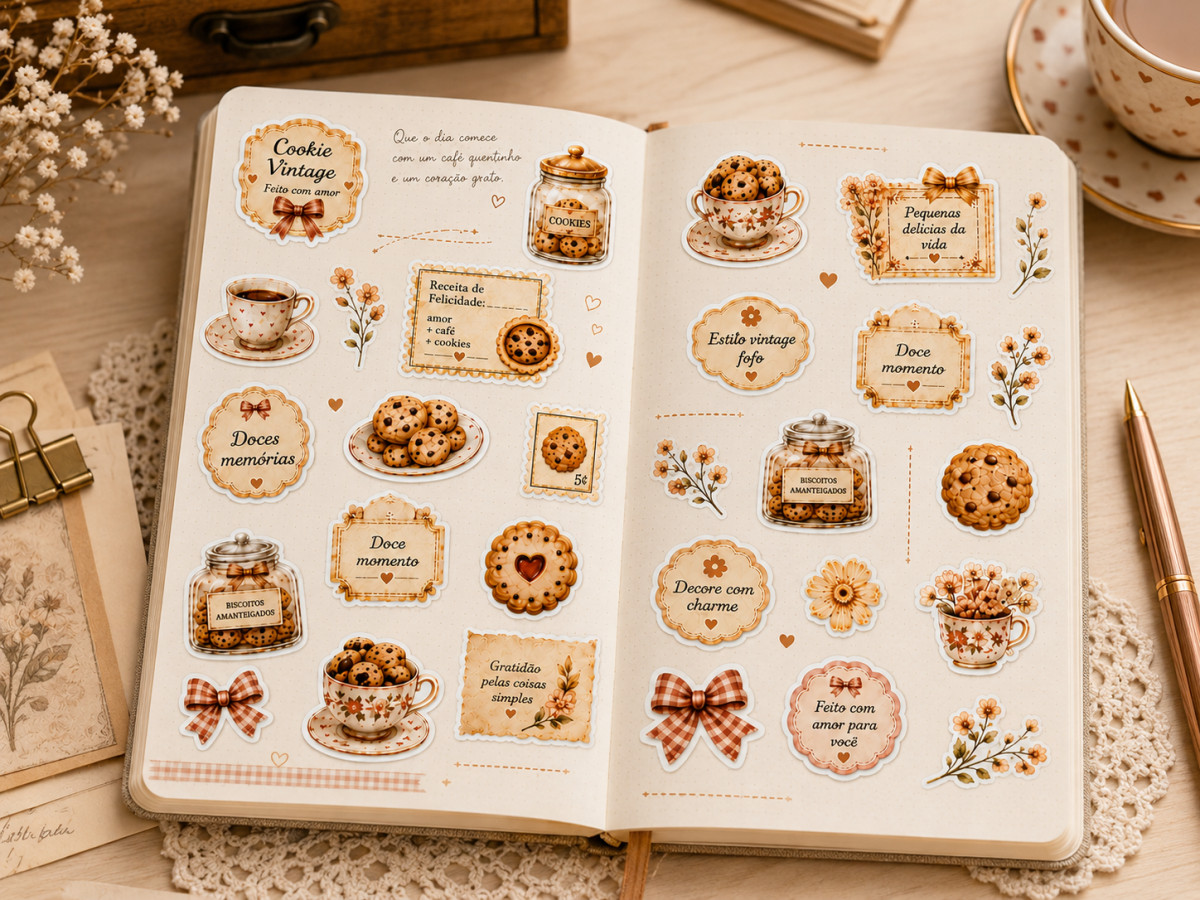 Cookie
Vintage
Feito com amor
Que o dia comece
com um café quentinho
e um coração grato.
COOKIES
Receita de
Felicidade:
amor
+ café
+ cookies
Doces
memórias
5¢
BISCOITOS
AMANTEIGADOS
Doce
momento
Gratidão
pelas coisas
simples
Pequenas
delicias da
vida
Estilo vintage
fofo
Doce
momento
BISCOITOS
AMANTEIGADOS
Decore com
charme
Feito com
amor para
você